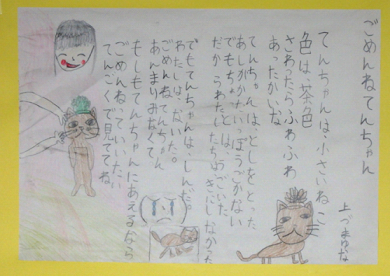 ごめんねてんちゃん
上づまゆな
てんちゃんは、小さいねこ
色は、茶色
さわったらふわふわ
あったかいな
てんちゃんは、としをとった
あしがかたいっぽううごかない
でもちょっとは、うごいた
だからわたしたちすきにしなかった
でもてんちゃんは、しんだ。
わたしは、ないた。
ごめんねてんちゃん
あんまりみなくて
もしもてんちゃんにあえるなら
ごめんねっていいたい
てんごくで見ててね。